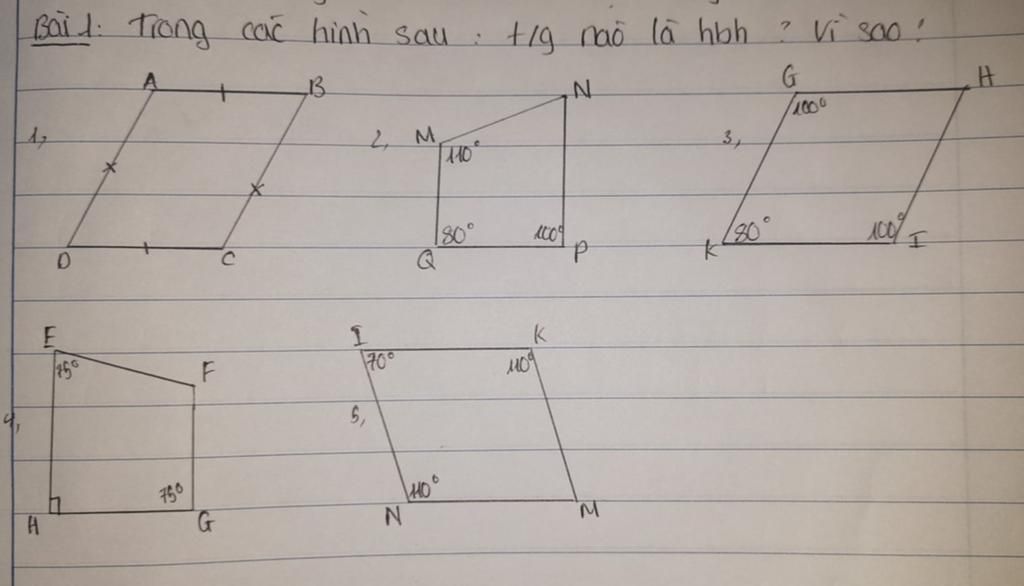 Bài 1: Trong các hình sau: t/g nào là hbh? Vì sao?
A B G H
N
1, 2, M 3,
100°
110°
80° 100° 80° 100°
D C Q P K I
E I K
75° F 70° 110°
4, 5,
75° 110°
H G N M